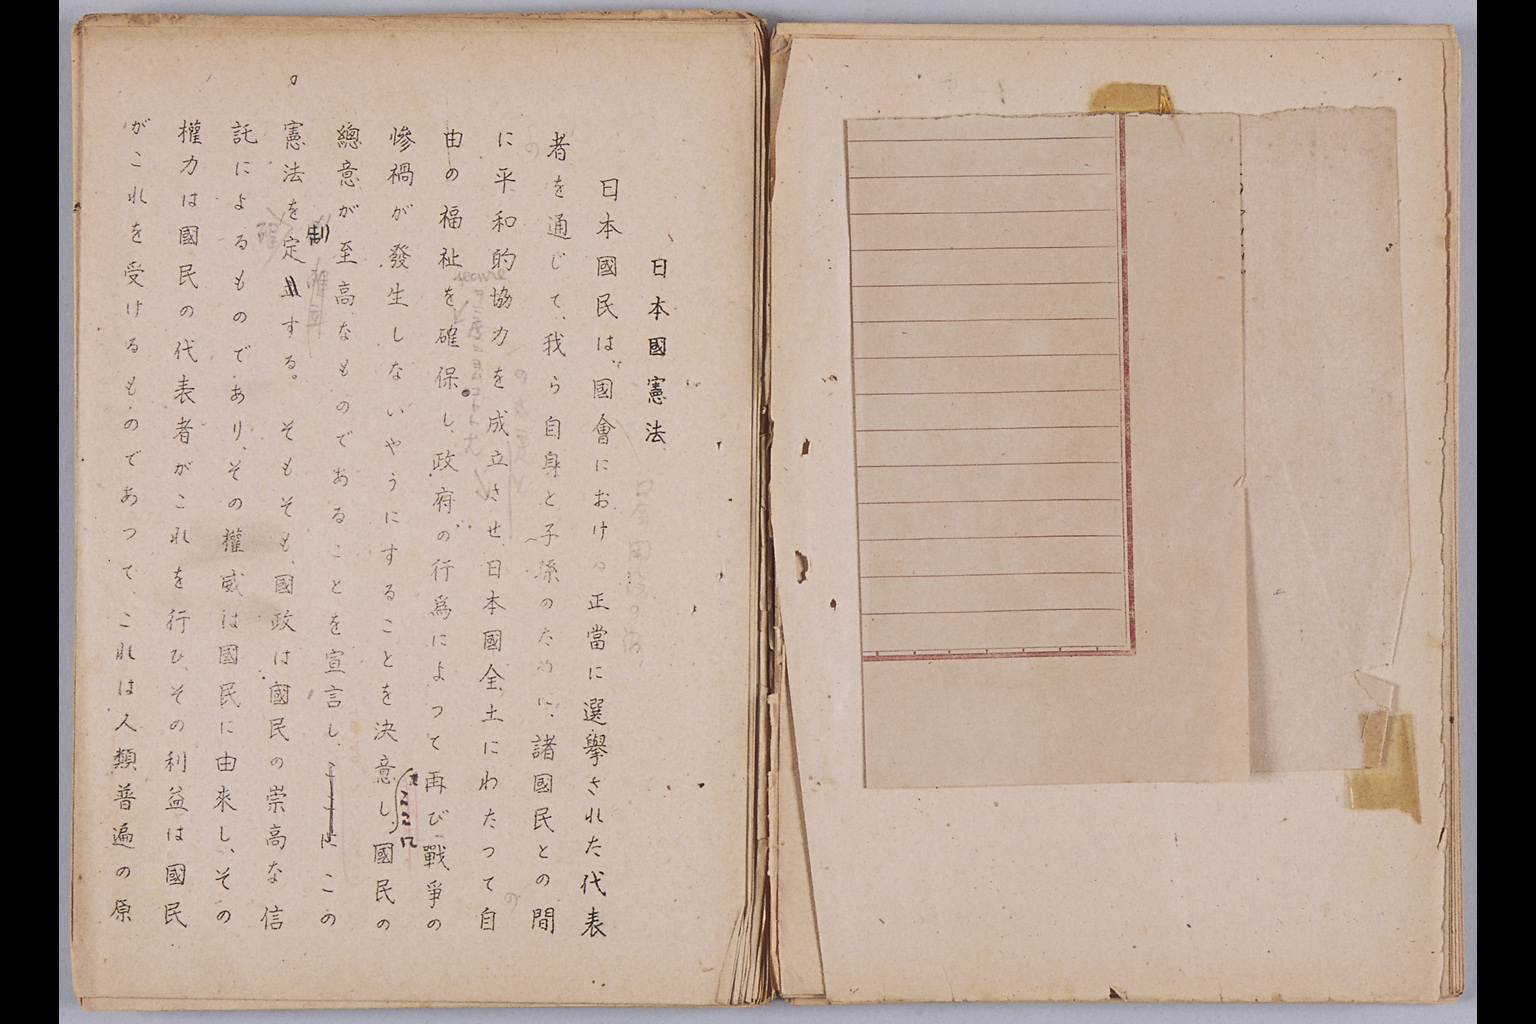 日本國憲法
日本國民は、國會における正當に選擧された代表
者を通じて、我ら自身と子孫のために、諸國民との間
に平和的協力を成立させ、日本國全土にわたつて自
由の福祉を確保し、政府の行爲によつて再び戰爭の
慘禍が發生しないやうにすることを決意し、國民の
ここに
總意が至高なものであることを宣言し、ここにこの
制
憲法を定する。そもそも、國政は國民の崇高な信
託によるものであり、その權威は國民に由來し、その
權力は國民の代表者がこれを行ひ、その利益は國民
がこれを受けるものであつて、これは人類普遍の原